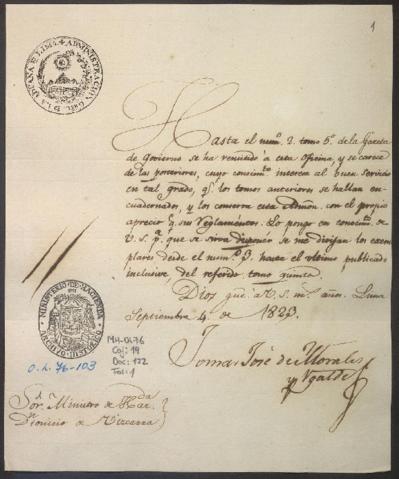 1
ADMINISTRACION GRAL. D. LA ADUANA D LIMA
Hasta el num.º 2. tomo 5.º de la Gaceta
de Govierno se ha remitido á esta oficina, y se carece
de las posteriores, cuyo conocim.to interesa al buen servicio
en tal grado, q.e los tomos anteriores se hallan en-
cuadernados, y los conserva esta Admon. con el propio
aprecio q.e sus Reglamentos. Lo pongo en conocim.to de
V. S. p.a que se sirva disponer se me dirijan los exem-
plares desde el num.º 3. hasta el ultimo publicado
inclusive del referido tomo quinto.
Dios gue. á V. S. m.s años. Lima
Septiembre 4. de 1823.
MINISTERIO DE HACIENDA
ARCHIVO HISTORICO
MH-OL76
Caj: 19
Doc: 122
Fol: 1
O.L. 76-103
Tomas José de Morales
y Ugalde
Sor. Ministro de Haz.da
D.n Dionicio de Vizcarra